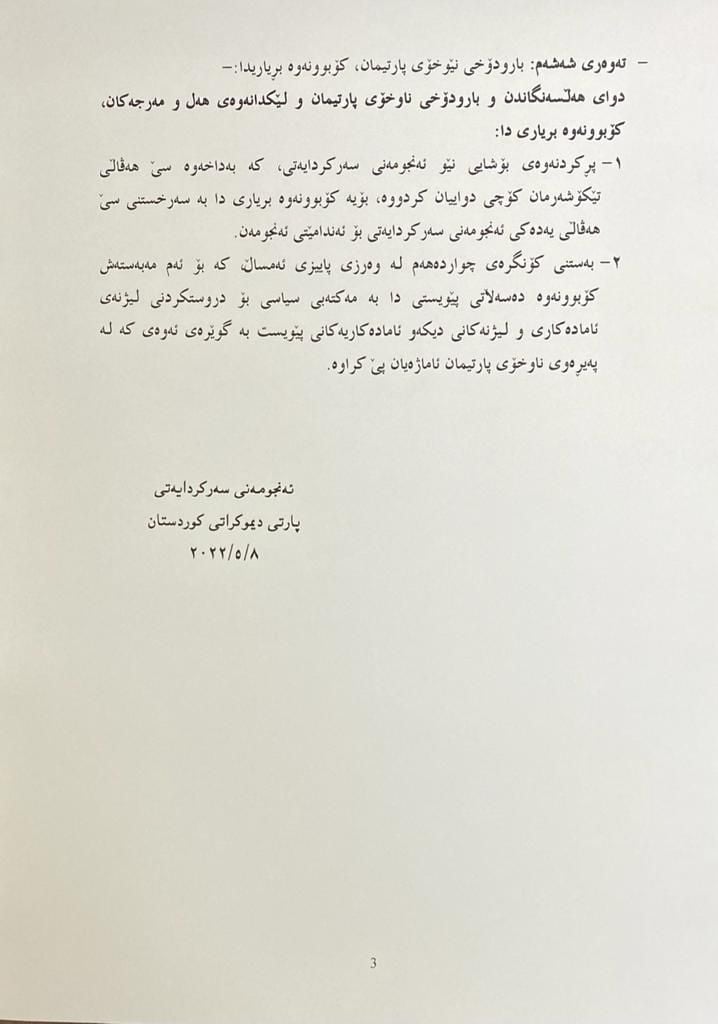 – تەوەری شەشەم: بارودۆخی نێوخۆی پارتیمان، کۆبوونەوە بڕیاریدا:–
دوای هەڵسەنگاندن و بارودۆخی ناوخۆی پارتیمان و لێکدانەوەی هەل و مەرجەکان،
کۆبوونەوە بڕیاری دا:
١– پڕکردنەوەی بۆشایی نێو ئەنجومەنی سەرکردایەتی، کە بەداخەوە سێ هەڤاڵی
تێکۆشەرمان کۆچی دواییان کردووە، بۆیە کۆبوونەوە بڕیاری دا بە سەرخستنی سێ
هەڤاڵی یەدەکی ئەنجومەنی سەرکردایەتی بۆ ئەندامێتی ئەنجومەن.
٢– بەستنی کۆنگرەی چواردەهەم لە وەرزی پاییزی ئەمساڵ، کە بۆ ئەم مەبەستەش
کۆبوونەوە دەسەڵاتی پێویستی دا بە مەکتەبی سیاسی بۆ دروستکردنی لیژنەی
ئامادەکاری و لیژنەکانی دیکەو ئامادەکاریەکانی پێویست بە گوێرەی ئەوەی کە لە
پەیڕەوی ناوخۆی پارتیمان ئاماژەیان پێ کراوە.
ئەنجومەنی سەرکردایەتی
پارتی دیموکراتی کوردستان
٢٠٢٢/٥/٨
3